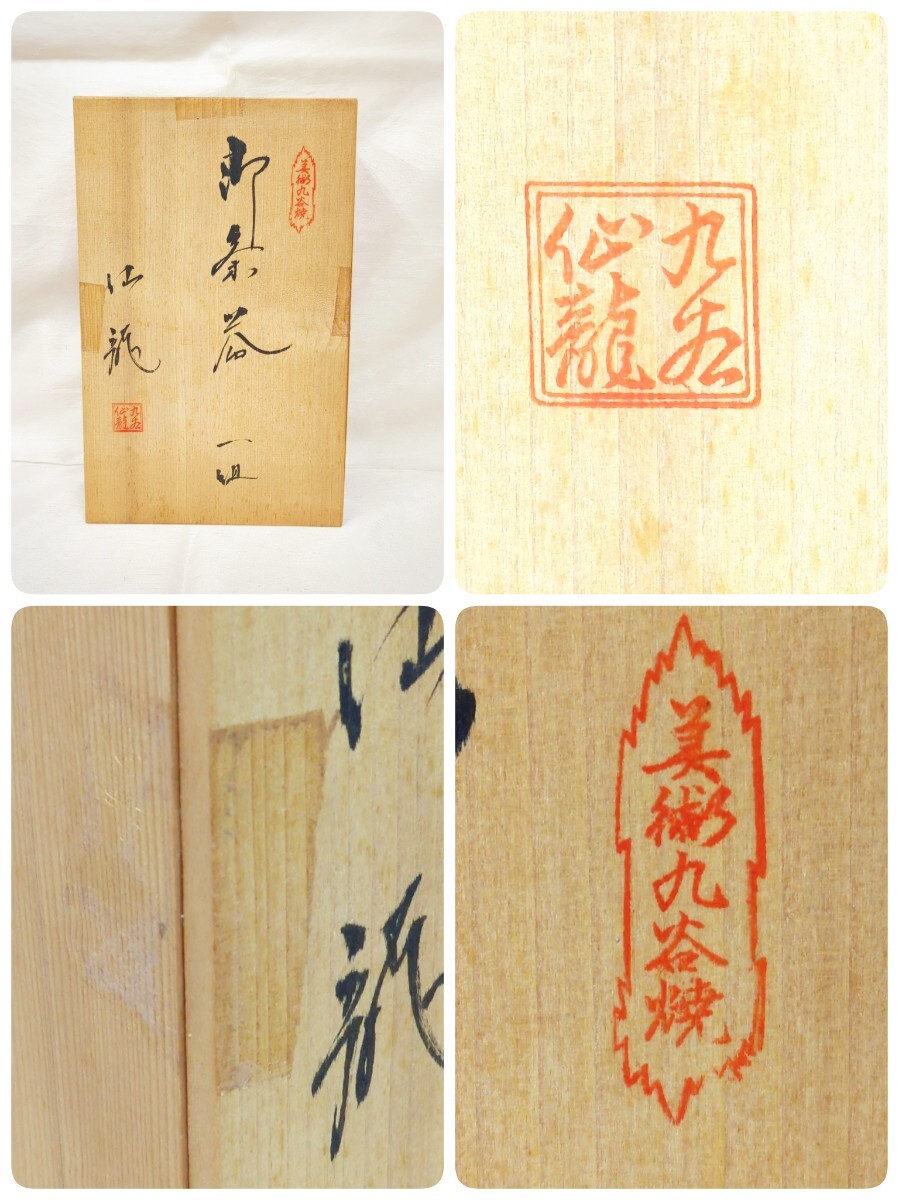 美術九谷焼
御茶器
一組
仙龍
九谷
仙龍
九谷
仙龍
仙
龍
美術九谷焼